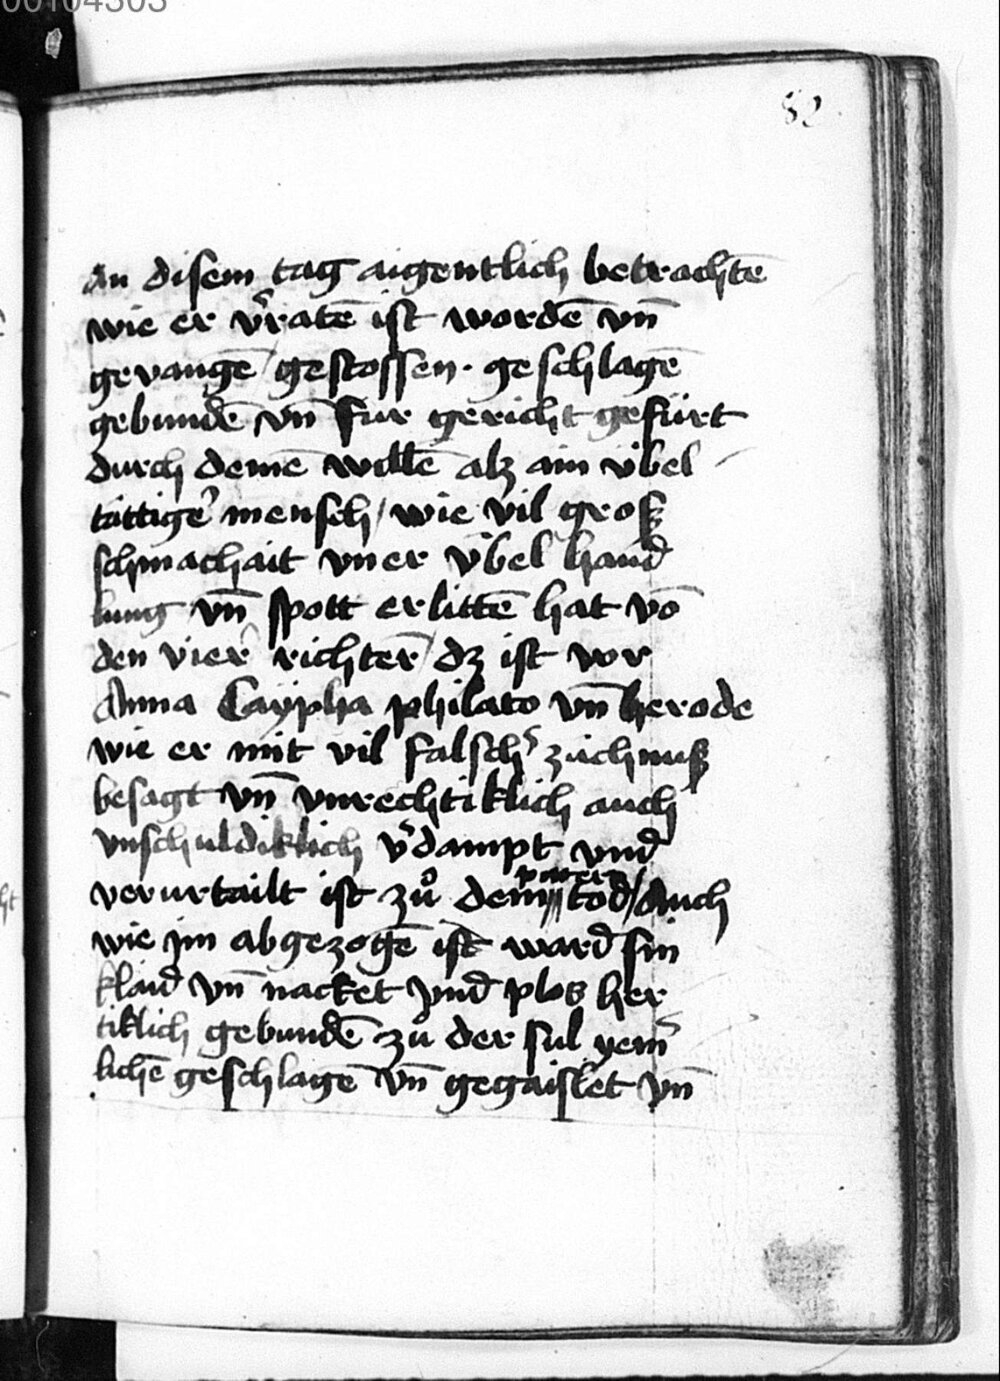 00104303
82
an disem tag aigentlich betrachtē
wie er v̾ratē ist wordē vn̄
gevangē / gestossen · geschlagē
gebundē vn̄ fur gericht gefürt
durch deinē willē alz ain v̈bel
tättiger mensch / wie vil groß
schmachait vner v̈bel hand
lung vn̄ spott erlittē hat vō
den vier richter / dz ist vor
Anna Caypha philato vn̄ herode
wie er mit vil falsch̾ züchnuß
besagt vn̄ vnrechtiklich auch
vnschuldiklich v̾dampt vnd
verurtailt ist zů dem // tod / Auch
wie jm abgezogē ist ward sin
klaid vn̄ nacket vnd plos her
tiklich gebundē zů der sul yem̾
lichē geschlagē vn̄ gegaislet vn̄